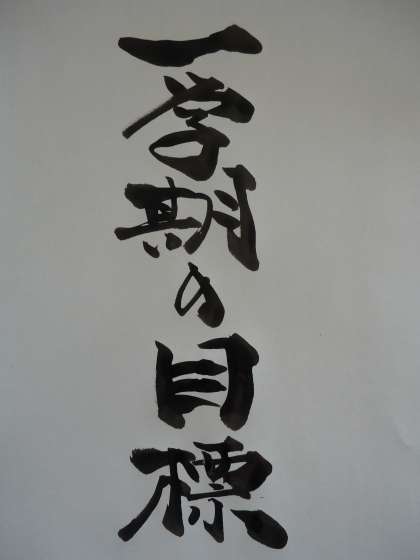 一学期の目標